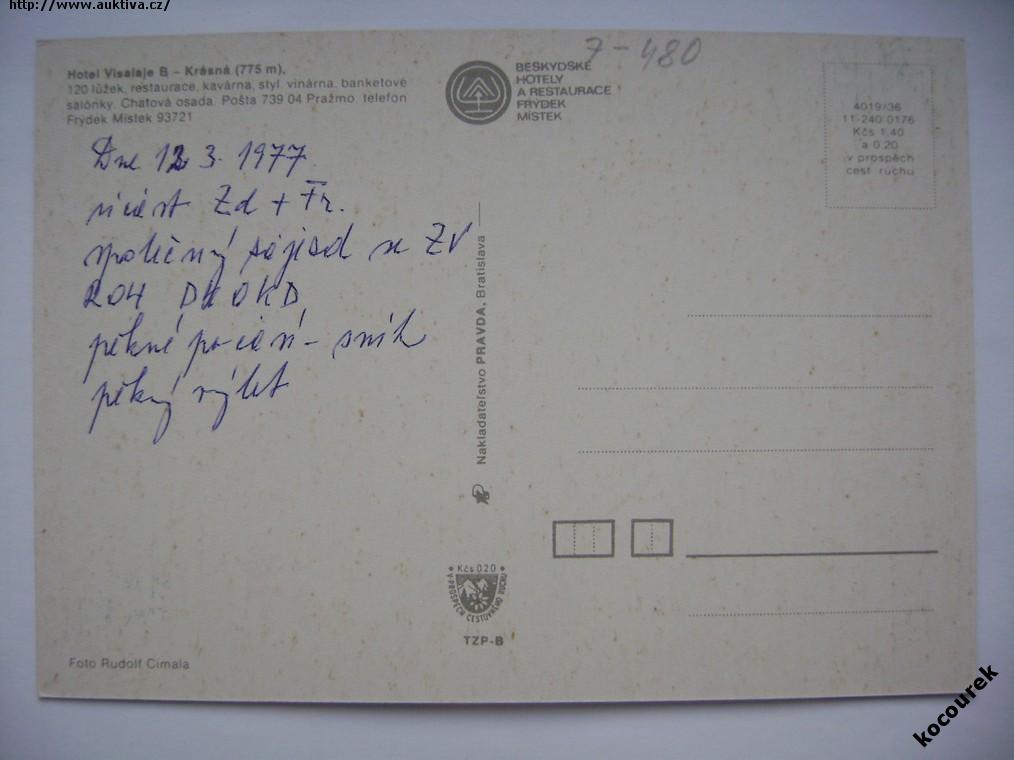 http://www.auktiva.cz/
7-480
Hotel Visalaje B – Krásná (775 m),
120 lůžek, restaurace, kavárna, styl. vinárna, banketové
salónky. Chatová osada. Pošta 739 04 Pražmo, telefon
Frýdek Místek 93721
BESKYDSKÉ
HOTELY
A RESTAURACE
FRÝDEK
MÍSTEK
4019/36
11-240 0176
Kčs 1,40
a 0,20
v prospěch
cest ruchu
Dne 12 3. 1977
účast Zd + Fr.
společný zájezd se ZV
ROH DK OKD
pěkné počasí - sníh
pěkný výlet
Nakladateľstvo PRAVDA, Bratislava
Kčs 020
V PROSPĚCH CESTOVNÉHO RUCHU
TZP-B
Foto Rudolf Cimala
kocourek